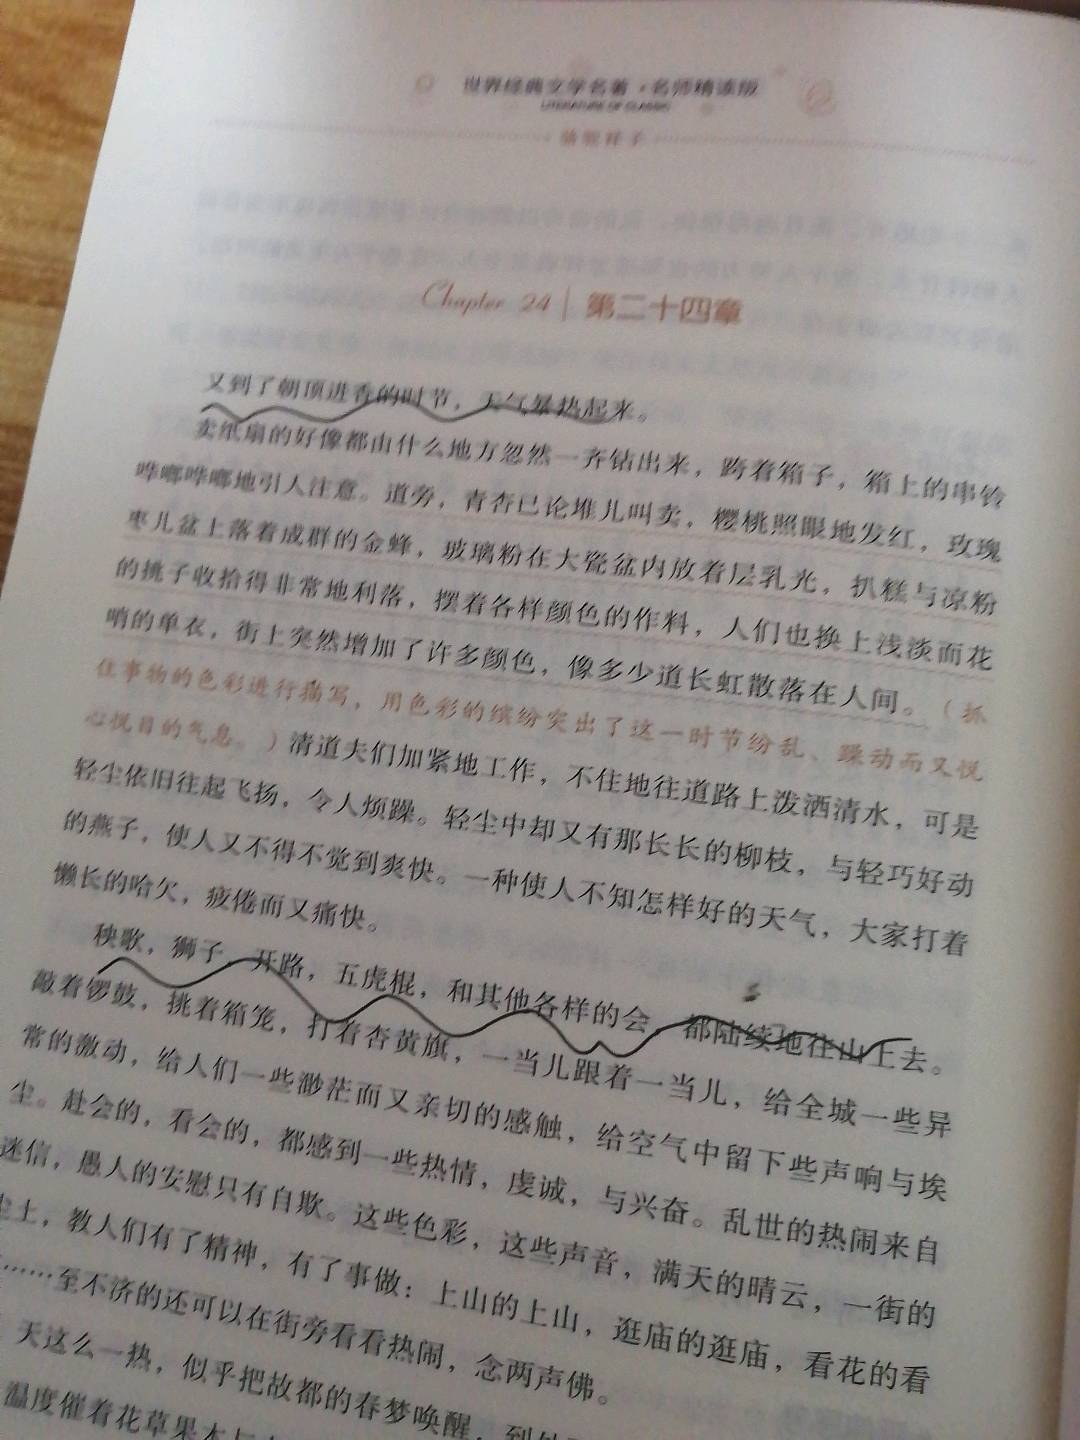 世界经典文学名著·名师精读版
LITERATURE OF CLASSIC
骆驼祥子
Chapter 24 | 第二十四章
又到了朝顶进香的时节，天气暴热起来。
卖纸扇的好像都由什么地方忽然一齐钻出来，跨着箱子，箱上的串铃
哗啷哗啷地引人注意。道旁，青杏已论堆儿叫卖，樱桃照眼地发红，玫瑰
枣儿盆上落着成群的金蜂，玻璃粉在大瓷盆内放着层乳光，扒糕与凉粉
的挑子收拾得非常地利落，摆着各样颜色的作料，人们也换上浅淡而花
哨的单衣，街上突然增加了许多颜色，像多少道长虹散落在人间。（抓
住事物的色彩进行描写，用色彩的缤纷突出了这一时节纷乱、躁动而又悦
心悦目的气息。）清道夫们加紧地工作，不住地往道路上泼洒清水，可是
轻尘依旧往起飞扬，令人烦躁。轻尘中却又有那长长的柳枝，与轻巧好动
的燕子，使人又不得不觉到爽快。一种使人不知怎样好的天气，大家打着
懒长的哈欠，疲倦而又痛快。
秧歌，狮子，开路，五虎棍，和其他各样的会，都陆续地往山上去。
敲着锣鼓，挑着箱笼，打着杏黄旗，一当儿跟着一当儿，给全城一些异
常的激动，给人们一些渺茫而又亲切的感触，给空气中留下些声响与埃
尘。赴会的，看会的，都感到一些热情，虔诚，与兴奋。乱世的热闹来自
迷信，愚人的安慰只有自欺。这些色彩，这些声音，满天的晴云，一街的
尘土，教人们有了精神，有了事做：上山的上山，逛庙的逛庙，看花的看
……至不济的还可以在街旁看看热闹，念两声佛。
天这么一热，似乎把故都的春梦唤醒，到处
温度催着花草果木与